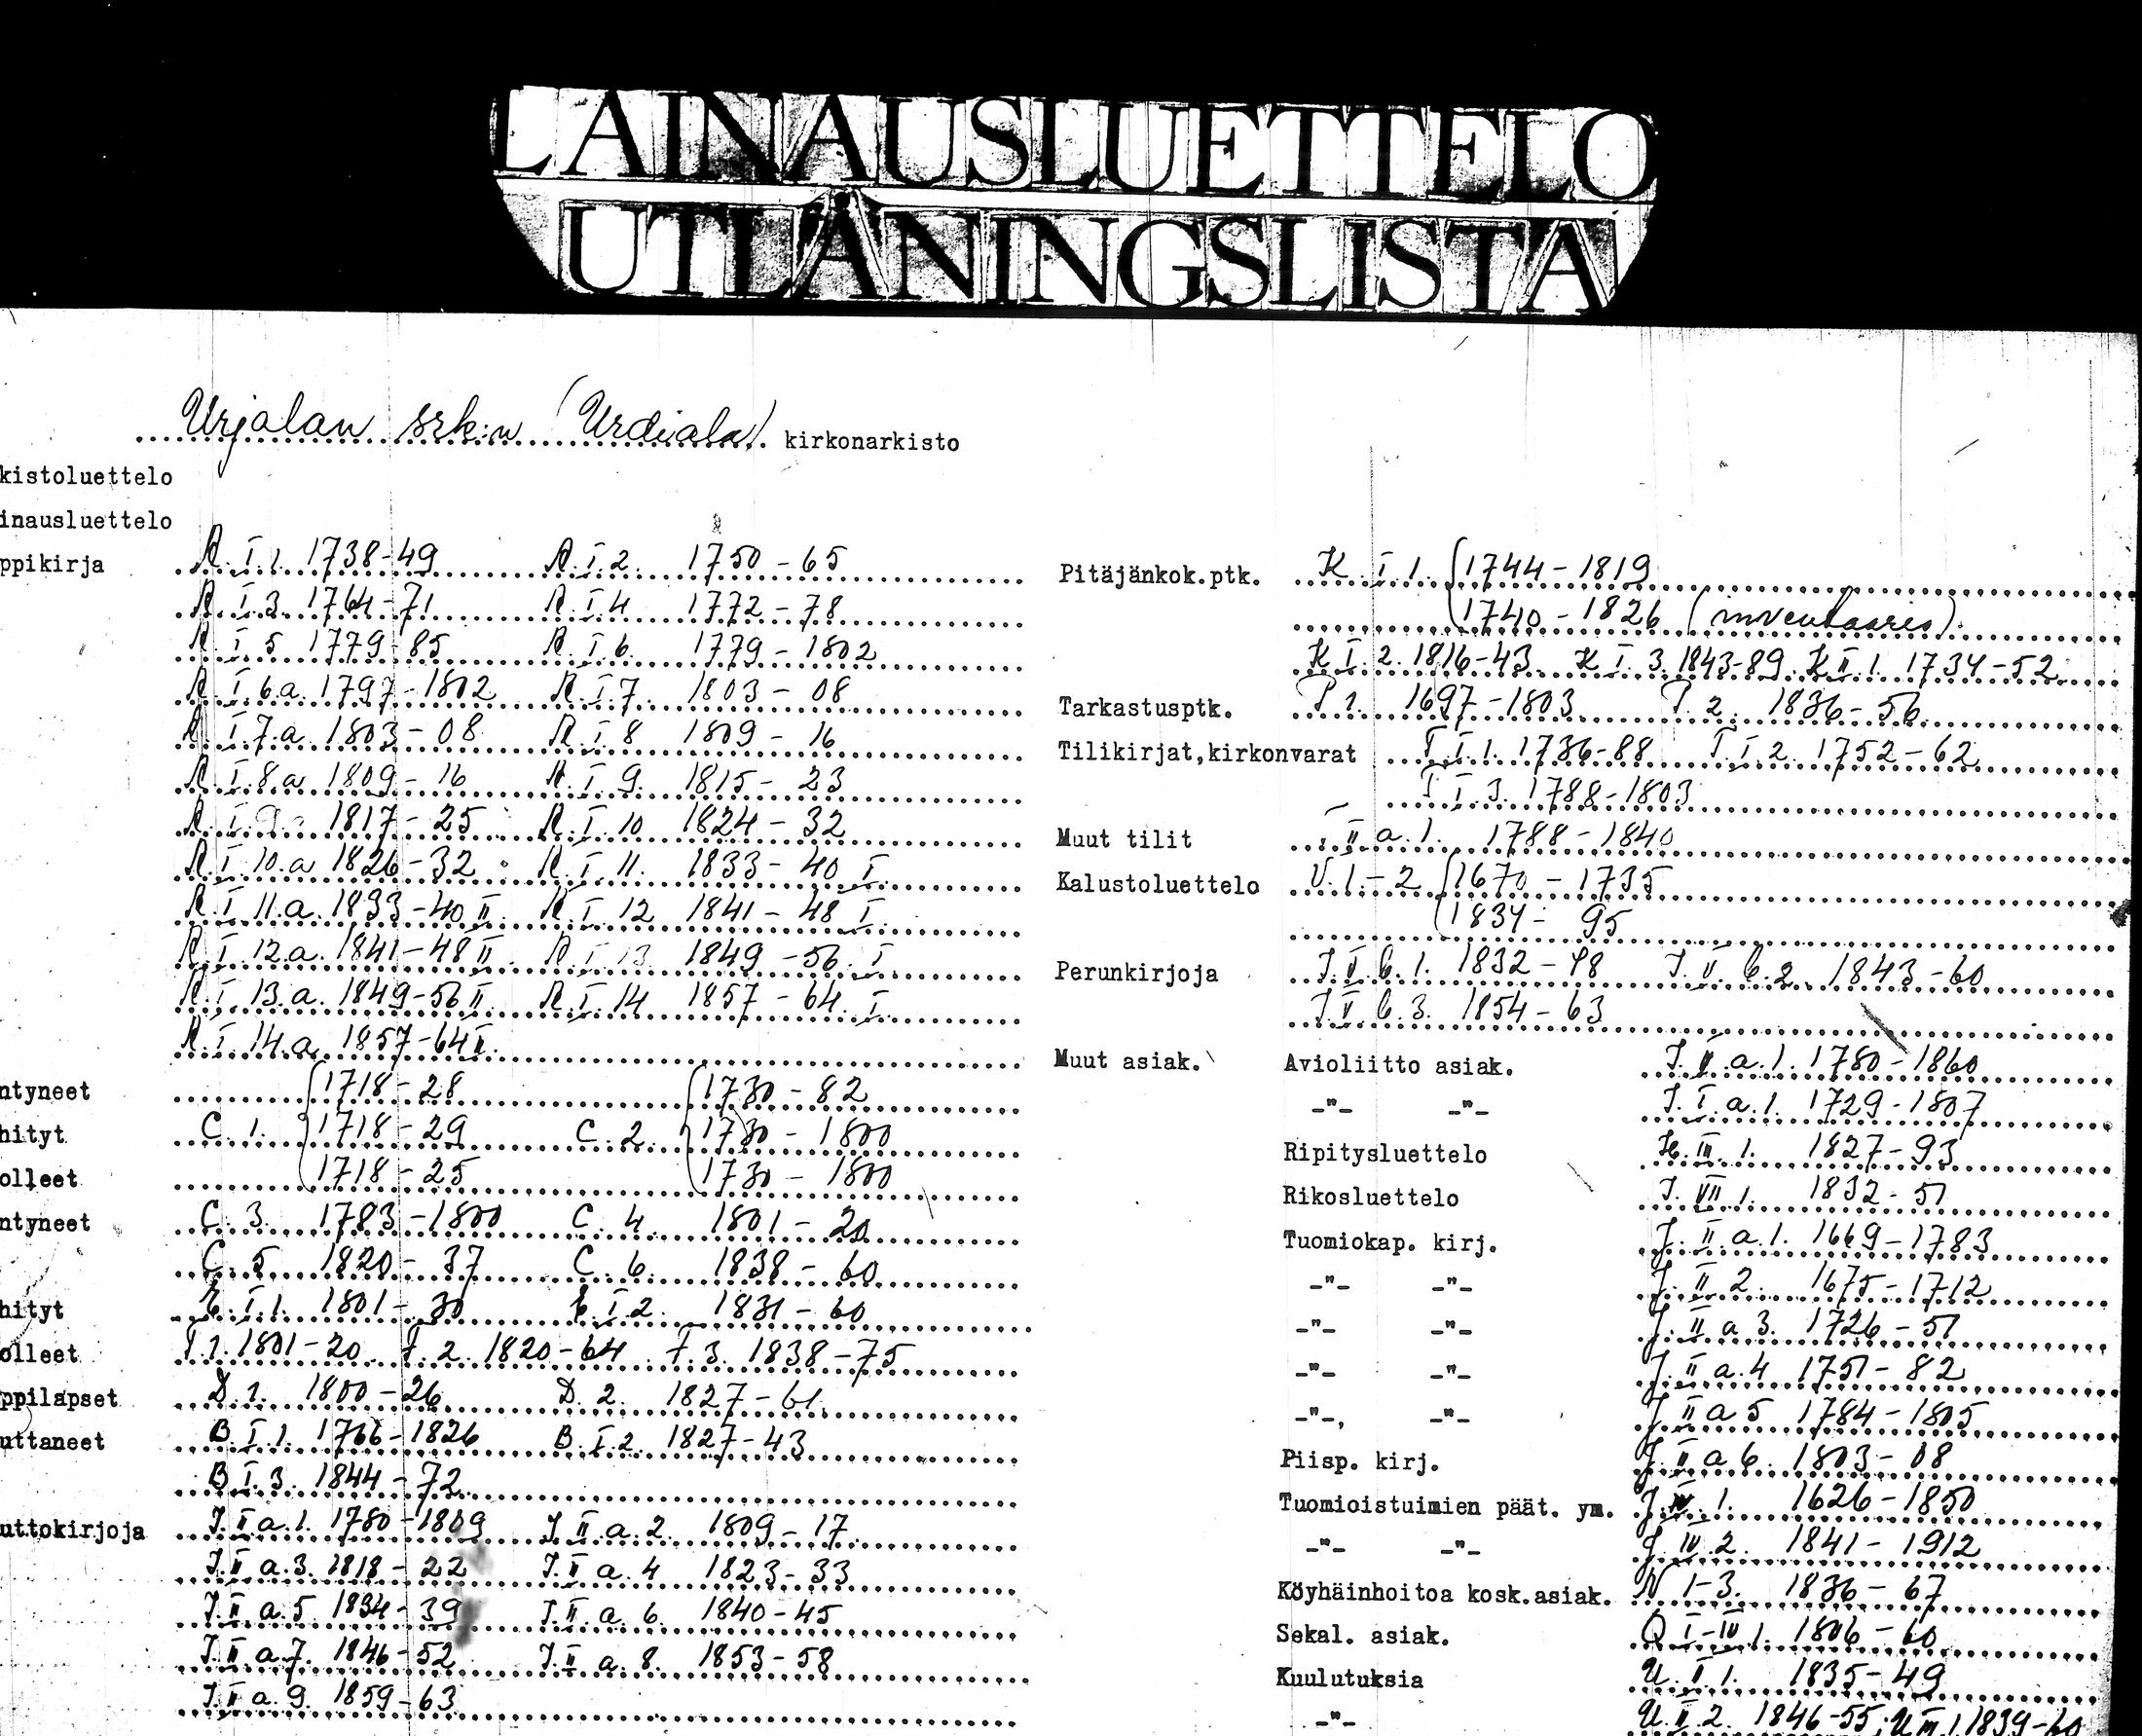 LAINAUSLUETTELO
UTLÅNINGSLISTA
Urjalan srk:n (Urdiala) kirkonarkisto
kistoluettelo
inausluettelo
ppikirja R.I.1. 1738-49 R.I.2. 1750-65
R.I.3. 1764-71 R.I.4 1772-78
R.I.5 1779-85 R.I.6. 1779-1802
R.I.6.a. 1797-1802 R.I.7. 1803-08
R.I.7.a. 1803-08 R.I.8 1809-16
R.I.8.a 1809-16 R.I.9. 1815-23
R.I.9a 1817-25 R.I.10 1824-32
R.I.10.a 1826-32 R.I.11. 1833-40 I.
R.I.11.a. 1833-40 II. R.I.12 1841-48 I.
R.I.12.a. 1841-48 II R.I.13. 1849-56. I
R.I.13.a. 1849-56 II. R.I.14 1857-64. I.
R.I.14.a. 1857-64 II.
ntyneet 1718-28 1730-82
hityt C.1. 1718-29 C.2. 1730-1800
olleet 1718-25 1730-1800
ntyneet C.3. 1783-1800 C.4. 1801-20
C.5 1820-37 C.6. 1838-60
hityt E.I.1. 1801-30 E.I.2. 1831-60
olleet F.1. 1801-20 F.2. 1820-64 F.3. 1838-75
ppilapset D.1. 1800-26 D.2. 1827-61.
uttaneet B.I.1. 1766-1826 B.I.2. 1827-43
B.I.3. 1844-72
uttokirjoja J.II.a.1. 1780-1809 J.II.a.2. 1809-17.
J.II.a.3. 1818-22 J.II.a.4 1823-33
J.II.a.5. 1834-39 J.II.a.6. 1840-45
J.II.a.7. 1846-52 J.II.a.8. 1853-58
J.II.a.9. 1859-63
Pitäjänkok.ptk. K.I.1. 1744-1819
1740-1826 (inventaario)
K.I.2. 1816-43 K.I.3. 1843-89. K.II.1. 1734-52
Tarkastusptk. P.1. 1697-1803 P.2. 1836-56
Tilikirjat,kirkonvarat T.I.1. 1736-88 T.I.2. 1752-62
T.I.3. 1788-1803
Muut tilit II.a.1. 1788-1840
Kalustoluettelo U.1.-2 1670-1735
1834-95
Perunkirjoja J.V.b.1. 1832-48 J.V.b.2. 1843-60
J.V.b.3. 1854-63
Muut asiak. Avioliitto asiak. J.V.a.1. 1780-1860
-"- -"- J.I.a.1. 1729-1807
Ripitysluettelo H.III.1. 1827-93
Rikosluettelo J.VII.1. 1832-51
Tuomiokap. kirj. J.II.a.1. 1669-1783
-"- -"- J.II.2. 1675-1712
-"- -"- J.II.a.3. 1726-51
-"- -"- J.II.a.4 1751-82
-"- -"- J.II.a.5 1784-1805
Piisp. kirj. J.II.a.6. 1803-08
Tuomioistuimien päät. ym. J.IV.1. 1626-1850
-"- -"- J.IV.2. 1841-1912
Köyhäinhoitoa kosk.asiak. N 1-3. 1836-67
Sekal. asiak. Q I-IV 1. 1806-60
Kuulutuksia U.II.1. 1835-49
-"- U.II.2. 1846-55; U.III.1. 1839-60